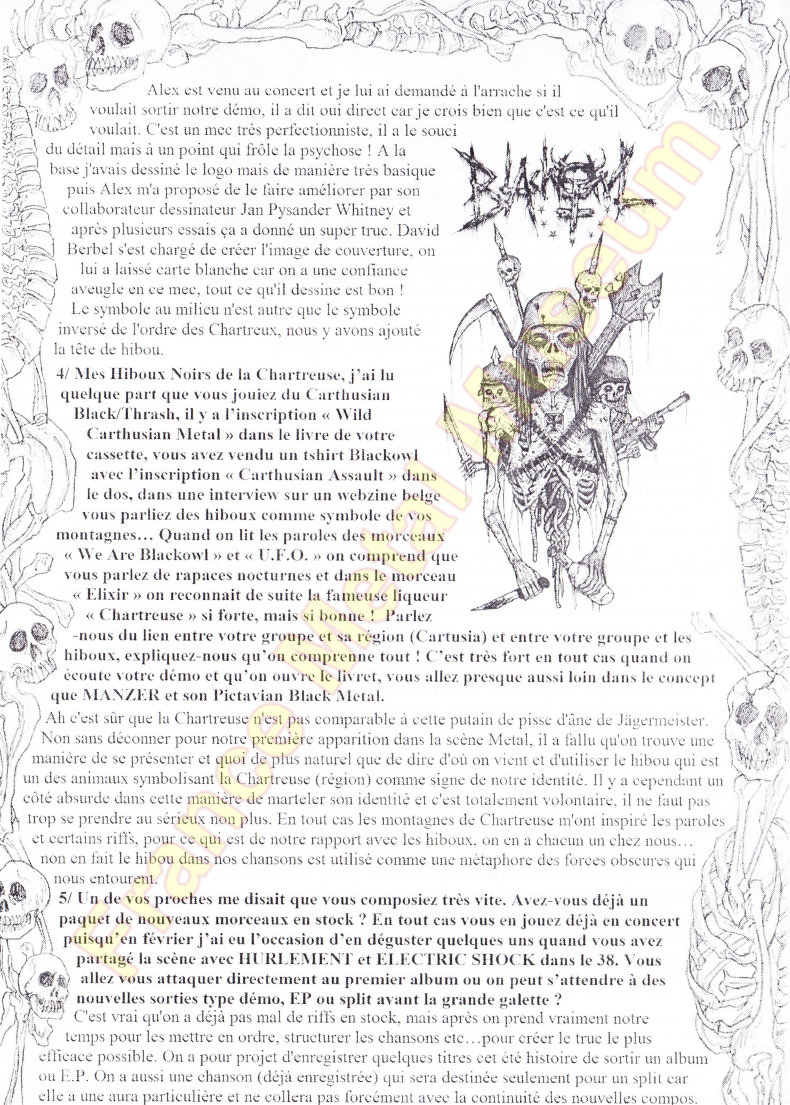 Alex est venu au concert et je lui ai demandé à l'arrache si il
voulait sortir notre démo, il a dit oui direct car je crois bien que c'est ce qu'il
voulait. C'est un mec très perfectionniste, il a le souci
du détail mais à un point qui frôle la psychose ! A la
base j'avais dessiné le logo mais de manière très basique
puis Alex m'a proposé de le faire améliorer par son
collaborateur dessinateur Jan Pysander Whitney et
après plusieurs essais ça a donné un super truc. David
Berbel s'est chargé de créer l'image de couverture, on
lui a laissé carte blanche car on a une confiance
aveugle en ce mec, tout ce qu'il dessine est bon !
Le symbole au milieu n'est autre que le symbole
inversé de l'ordre des Chartreux, nous y avons ajouté
la tête de hibou.
Blackowl
4/ Mes Hiboux Noirs de la Chartreuse, j'ai lu
quelque part que vous jouiez du Carthusian
Black/Thrash, il y a l'inscription « Wild
Carthusian Metal » dans le livre de votre
cassette, vous avez vendu un tshirt Blackowl
avec l'inscription « Carthusian Assault » dans
le dos, dans une interview sur un webzine belge
vous parliez des hiboux comme symbole de vos
montagnes… Quand on lit les paroles des morceaux
« We Are Blackowl » et « U.F.O. » on comprend que
vous parlez de rapaces nocturnes et dans le morceau
« Elixir » on reconnait de suite la fameuse liqueur
« Chartreuse » si forte, mais si bonne ! Parlez
-nous du lien entre votre groupe et sa région (Cartusia) et entre votre groupe et les
hiboux, expliquez-nous qu'on comprenne tout ! C'est très fort en tout cas quand on
écoute votre démo et qu'on ouvre le livret, vous allez presque aussi loin dans le concept
que MANZER et son Pictavian Black Metal.
Ah c'est sûr que la Chartreuse n'est pas comparable à cette putain de pisse d'âne de Jägermeister.
Non sans déconner pour notre première apparition dans la scène Metal, il a fallu qu'on trouve une
manière de se présenter et quoi de plus naturel que de dire d'où on vient et d'utiliser le hibou qui est
un des animaux symbolisant la Chartreuse (région) comme signe de notre identité. Il y a cependant un
côté absurde dans cette manière de marteler son identité et c'est totalement volontaire, il ne faut pas
trop se prendre au sérieux non plus. En tout cas les montagnes de Chartreuse m'ont inspiré les paroles
et certains riffs, pour ce qui est de notre rapport avec les hiboux, on en a chacun un chez nous…
non en fait le hibou dans nos chansons est utilisé comme une métaphore des forces obscures qui
nous entourent.
5/ Un de vos proches me disait que vous composiez très vite. Avez-vous déjà un
paquet de nouveaux morceaux en stock ? En tout cas vous en jouez déjà en concert
puisqu'en février j'ai eu l'occasion d'en déguster quelques uns quand vous avez
partagé la scène avec HURLEMENT et ELECTRIC SHOCK dans le 38. Vous
allez vous attaquer directement au premier album ou on peut s'attendre à des
nouvelles sorties type démo, EP ou split avant la grande galette ?
C'est vrai qu'on a déjà pas mal de riffs en stock, mais après on prend vraiment notre
temps pour les mettre en ordre, structurer les chansons etc…pour créer le truc le plus
efficace possible. On a pour projet d'enregistrer quelques titres cet été histoire de sortir un album
ou E.P. On a aussi une chanson (déjà enregistrée) qui sera destinée seulement pour un split car
elle a une aura particulière et ne collera pas forcément avec la continuité des nouvelles compos.
France Metal Museum